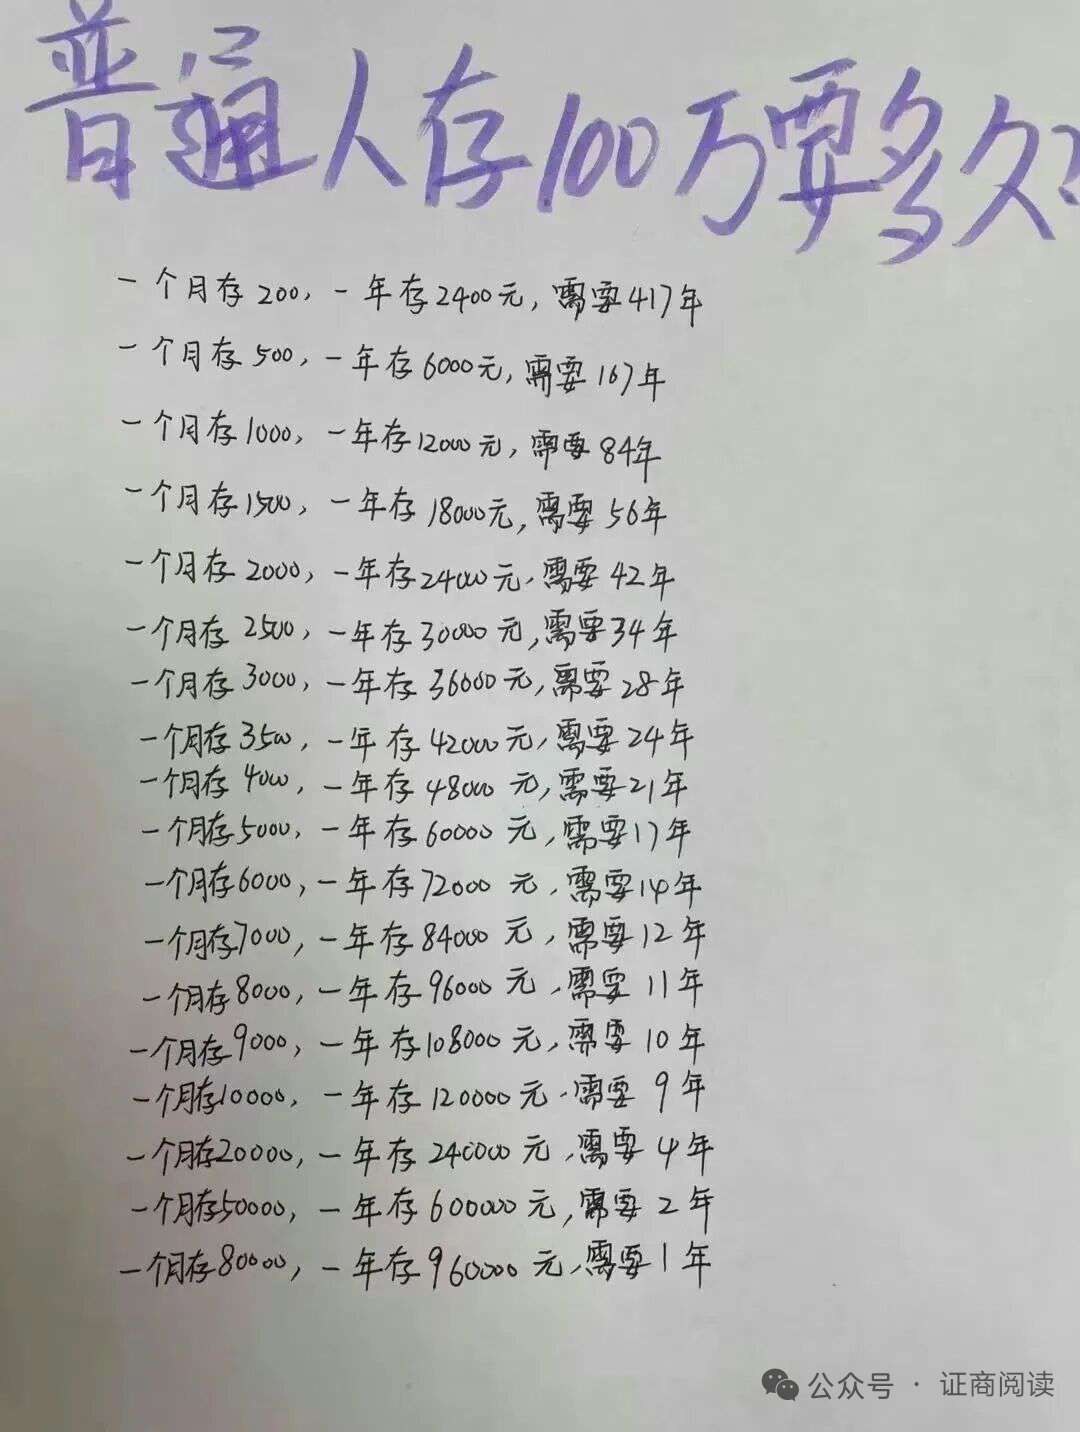 普通人存100万要多久?
一个月存200，一年存2400元，需要417年
一个月存500，一年存6000元，需要167年
一个月存1000，一年存12000元，需要84年
一个月存1500，一年存18000元，需要56年
一个月存2000，一年存24000元，需要42年
一个月存2500，一年存30000元，需要34年
一个月存3000，一年存36000元，需要28年
一个月存3500，一年存42000元，需要24年
一个月存4000，一年存48000元，需要21年
一个月存5000，一年存60000元，需要17年
一个月存6000，一年存72000元，需要14年
一个月存7000，一年存84000元，需要12年
一个月存8000，一年存96000元，需要11年
一个月存9000，一年存108000元，需要10年
一个月存10000，一年存120000元，需要9年
一个月存20000，一年存240000元，需要4年
一个月存50000，一年存600000元，需要2年
一个月存80000，一年存960000元，需要1年
公众号 · 证商阅读